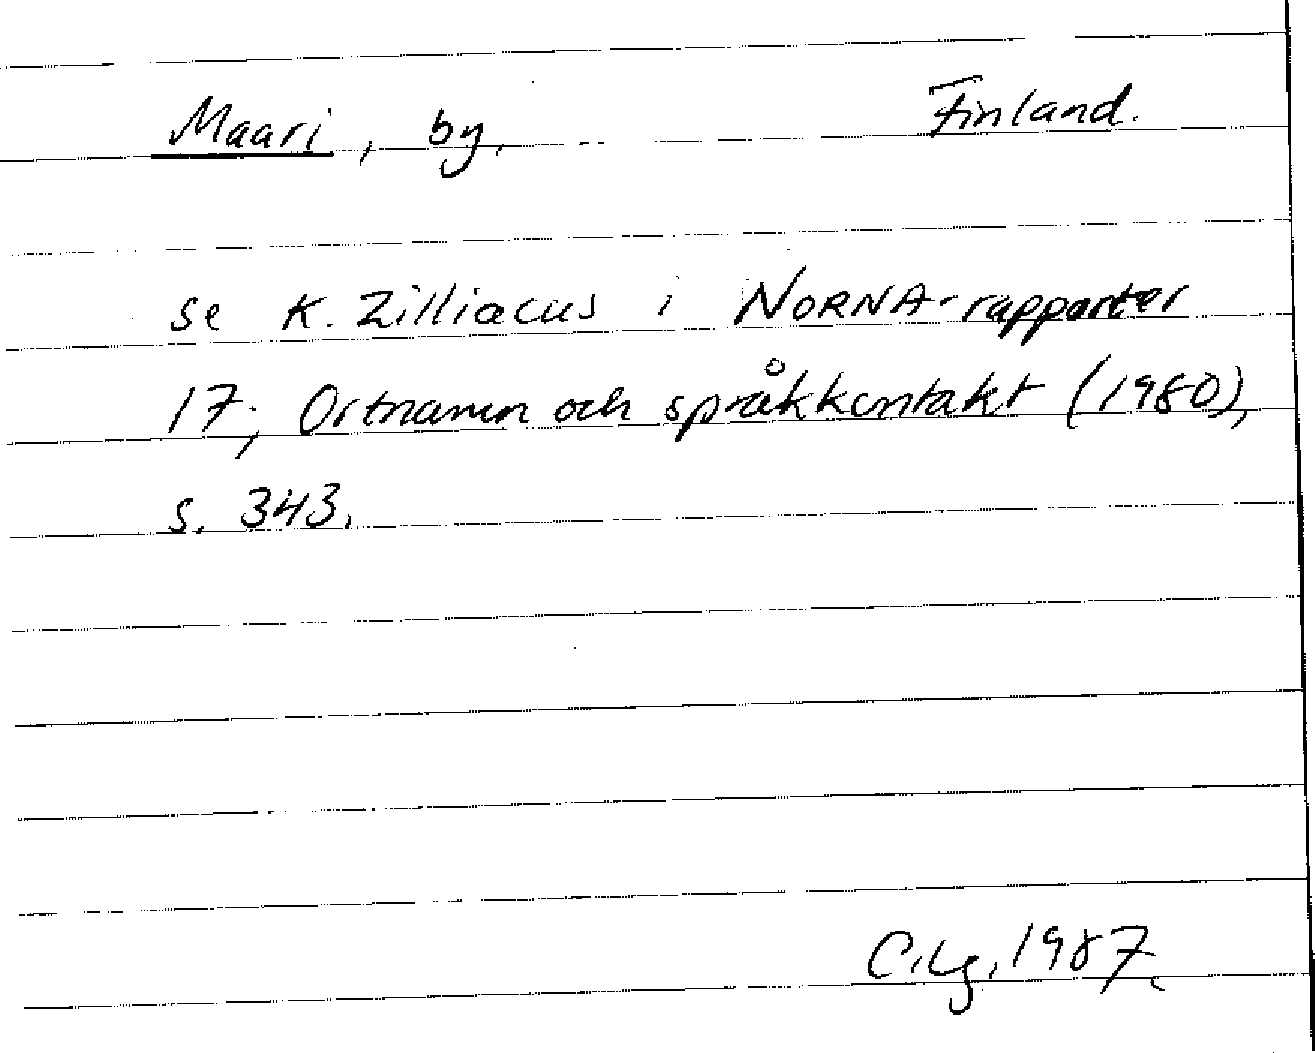 Maari, by. Finland.
se K. Zilliacus i NORNA-rapporter
17; Ortnamn och språkkontakt (1980),
s. 343.
C.Lg. 1987.